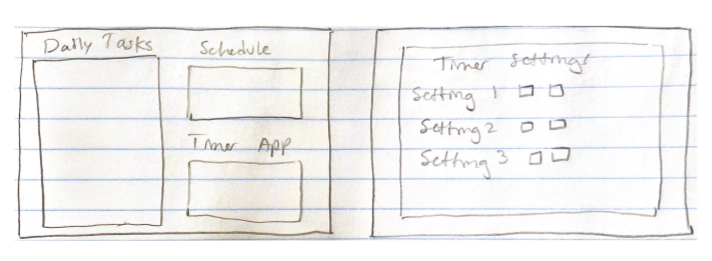 Daily Tasks
Schedule
Timer App
Timer Settings
Setting 1
Setting 2
Setting 3